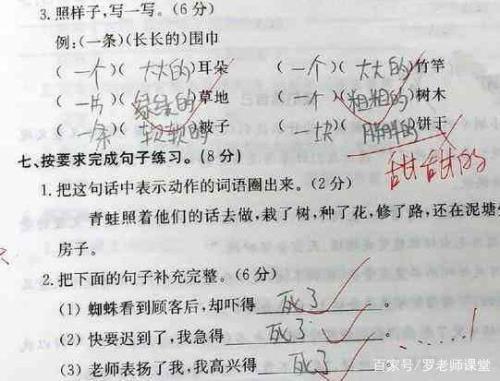 3.照样子,写一写。(6分)
例:(一条)(长长的)围巾
(一个)(大大的)耳朵 (一个)(大大的)竹竿
(一片)(绿绿的)草地 (一个)(粗粗的)树木
(一条)(软软的)被子 (一块)(胖胖的)饼干
甜甜的
七、按要求完成句子练习。(8分)
1.把这句话中表示动作的词语圈出来。(2分)
青蛙照着他们的话去做,栽了树,种了花,修了路,还在泥塘
房子。
2.把下面的句子补充完整。(6分)
(1) 蜘蛛看到顾客后,却吓得 死了 。
(2) 快要迟到了,我急得 死了 。
(3) 老师表扬了我,我高兴得 死了 。
......!
百家号/罗老师课堂